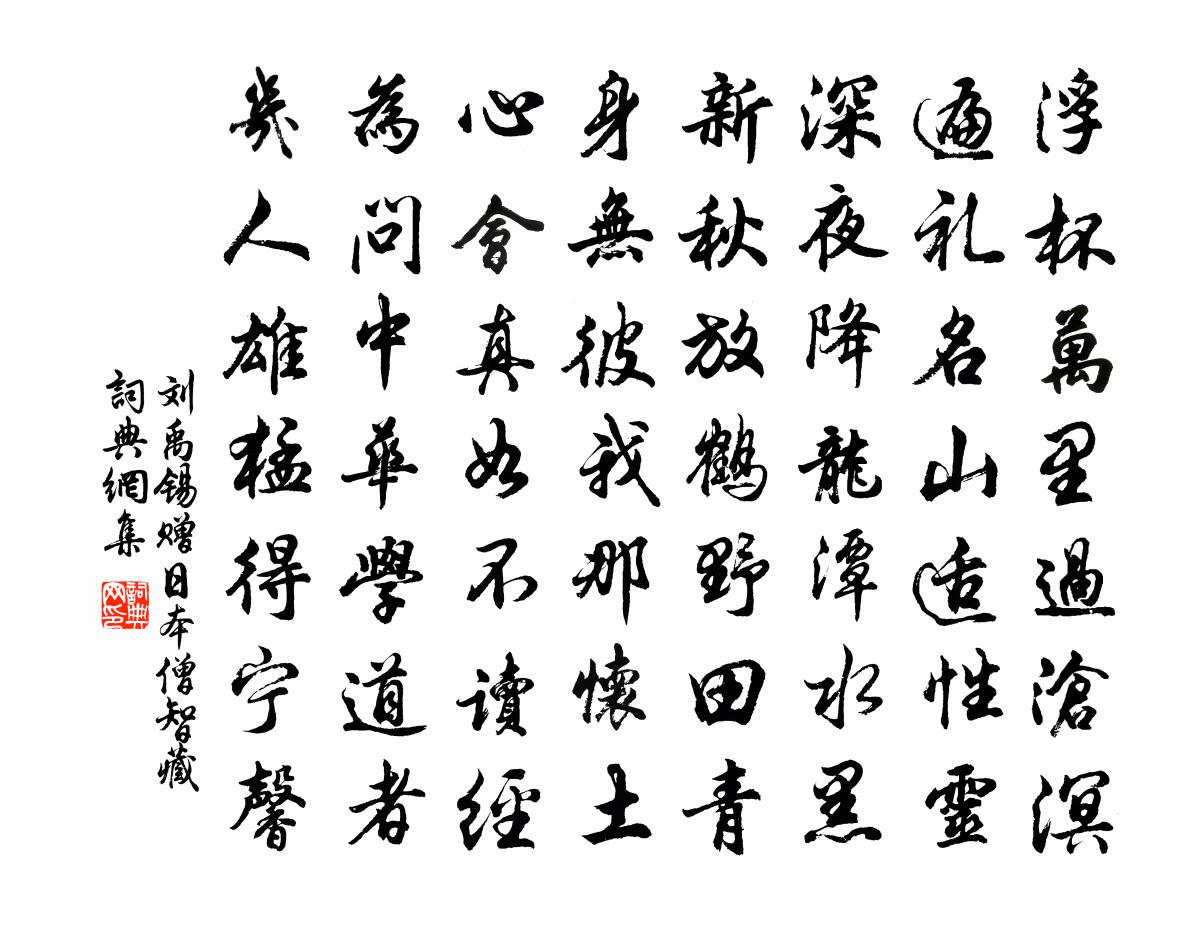 浮杯萬里過滄溟
遍礼名山适性靈
深夜降龍潭水黑
新秋放鶴野田青
身無彼我那懷土
心會真如不讀經
為問中華學道者
幾人雄猛得宁馨
刘禹锡赠日本僧智藏
詞典網集
詞典网印